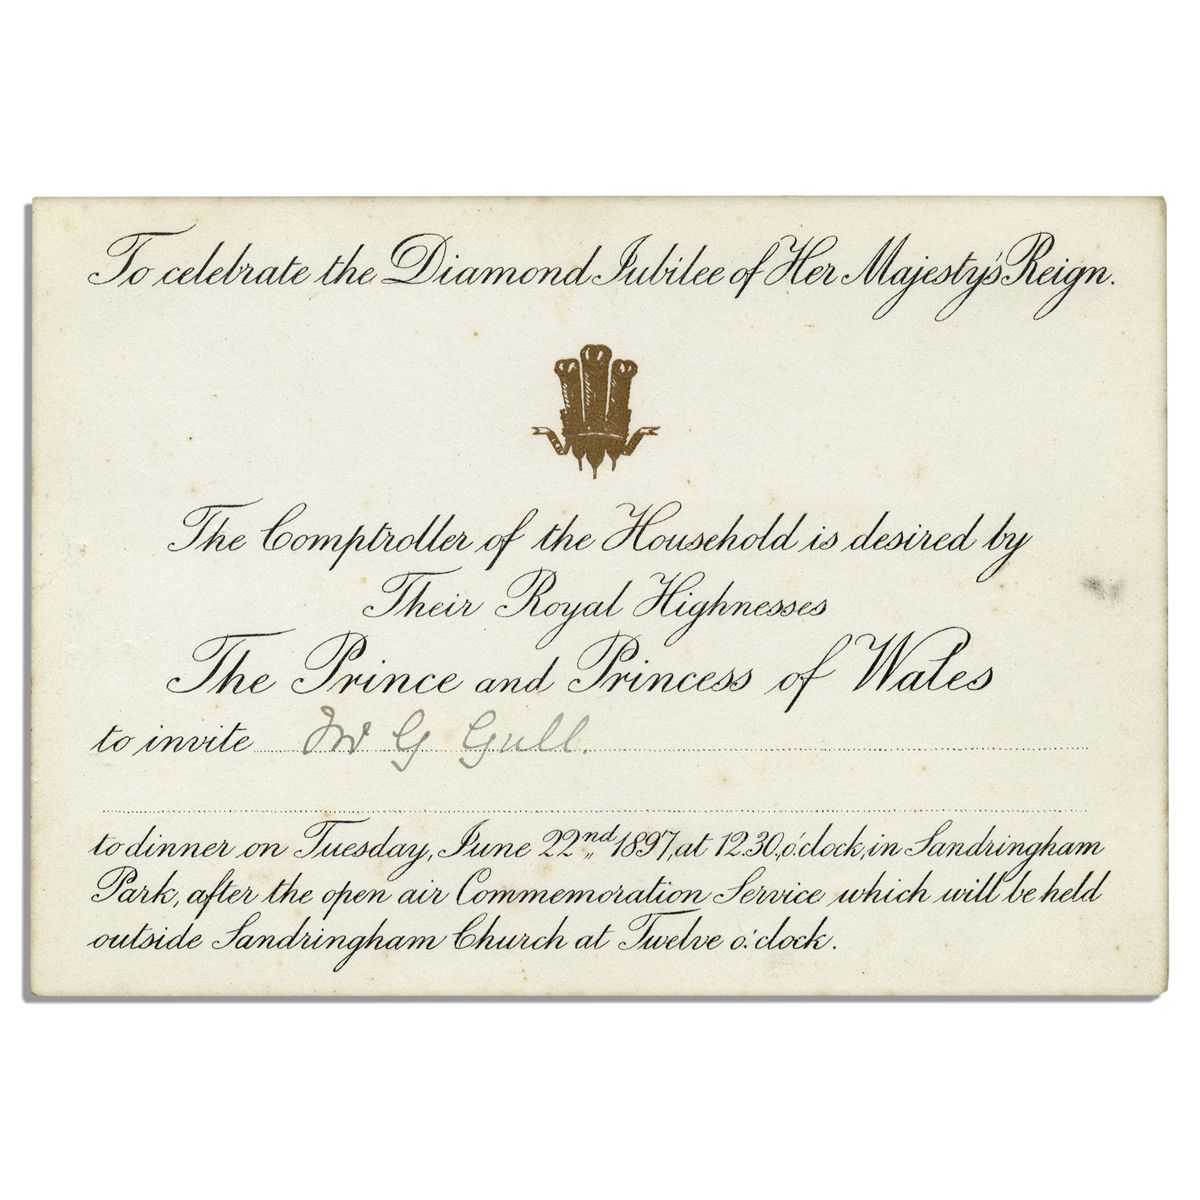 To celebrate the Diamond Jubilee of Her Majesty's Reign.
The Comptroller of the Household is desired by
Their Royal Highnesses
The Prince and Princess of Wales
to invite G Gull.
to dinner on Tuesday, June 22nd 1897, at 12.30, o'clock, in Sandringham
Park, after the open air Commemoration Service which will be held
outside Sandringham Church at Twelve o'clock.